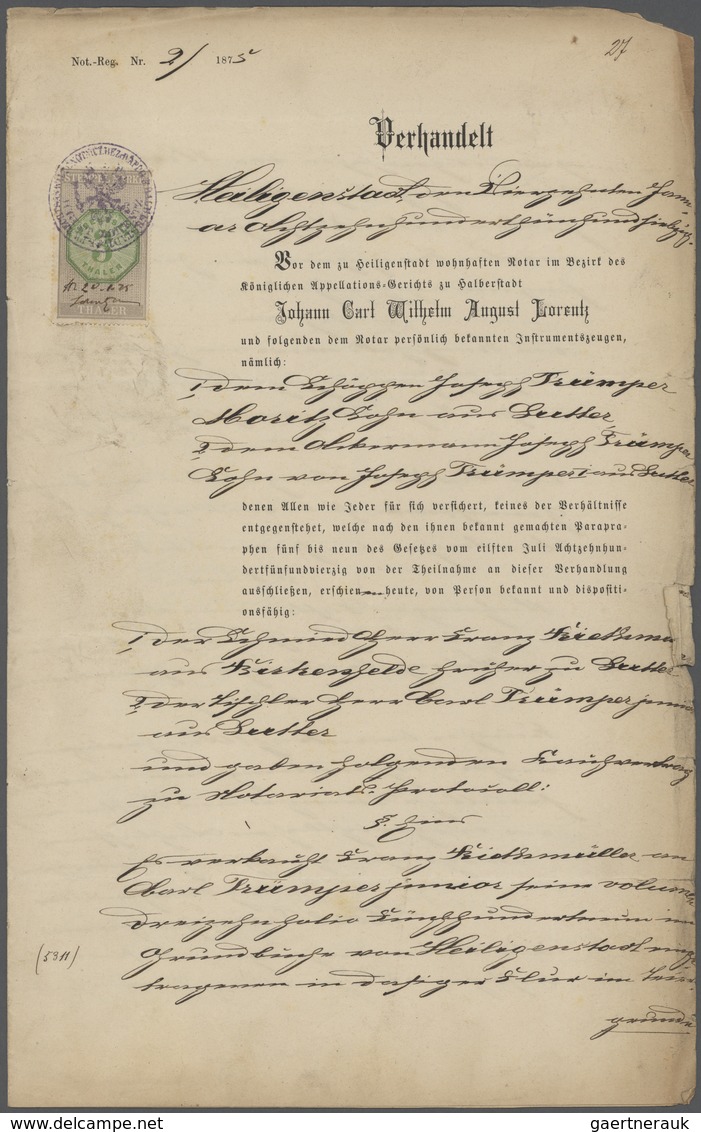 27
Not.-Reg. Nr. 2/ 1875
Verhandelt
Heiligenstadt, den Vierzehnten Janu-
ar Achtzehnhundertfünfundsiebzig.
STEMPELMARKE
THALER
THALER
Vor dem zu Heiligenstadt wohnhaften Notar im Bezirk des
Königlichen Appellations-Gerichts zu Halberstadt
Johann Carl Wilhelm August Lorentz
und folgenden dem Notar persönlich bekannten Instrumentszeugen,
nämlich:
1, dem Schöppen Joseph Trümper
Moritz Sohn aus Lutter,
2, dem Ackermann Joseph Trümper
Sohn von Joseph Trümper I aus Lutter
denen Allen wie Jeder für sich versichert, keines der Verhältnisse
entgegenstehet, welche nach den ihnen bekannt gemachten Paragra-
phen fünf bis neun des Gesetzes vom eilften Juli Achtzehnhun-
dertfünfundvierzig von der Theilnahme an dieser Verhandlung
ausschließen, erschienen heute, von Person bekannt und dispositi-
onsfähig:
1, der Schmied Herr Franz
aus Birkenfelde früher zu Lutter
2, der Tischler Herr Carl Trümper junior
aus Lutter
und gaben folgenden Kaufvertrag
zu Notariats-Protocoll:
§. Eins
Es verkauft Franz an
Carl Trümper junior seine volumen
dreizehn folio Fünfhundertneun im
Grundbuche von Heiligenstadt einge-
(5311)
tragenen in dasiger Flur im
grunde
gaertnerauk / gaertnerauk.com